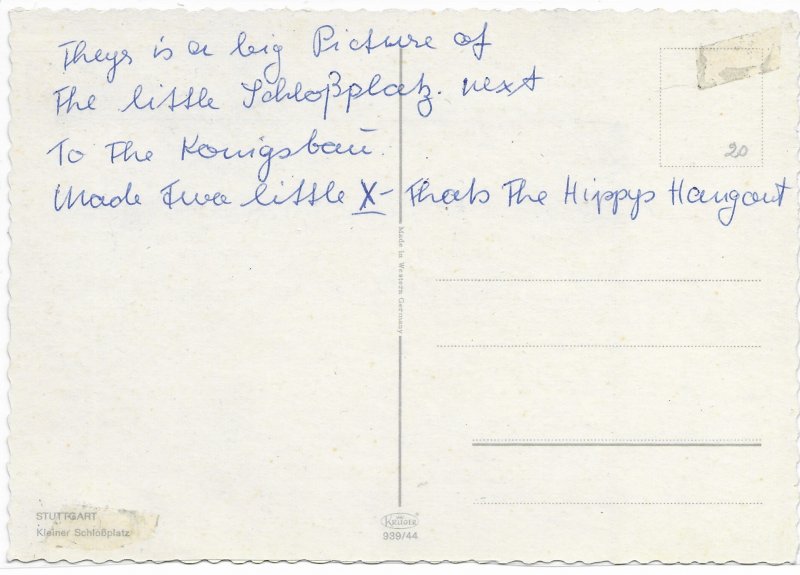 Theys is a big Picture of
The little Schloßplatz. next
To The Konigsbaü.
Made Two little X- Thats The Hippys Hangout
20
Made in Western Germany
STUTTGART
Kleiner Schloßplatz
KRÜGER
939/44